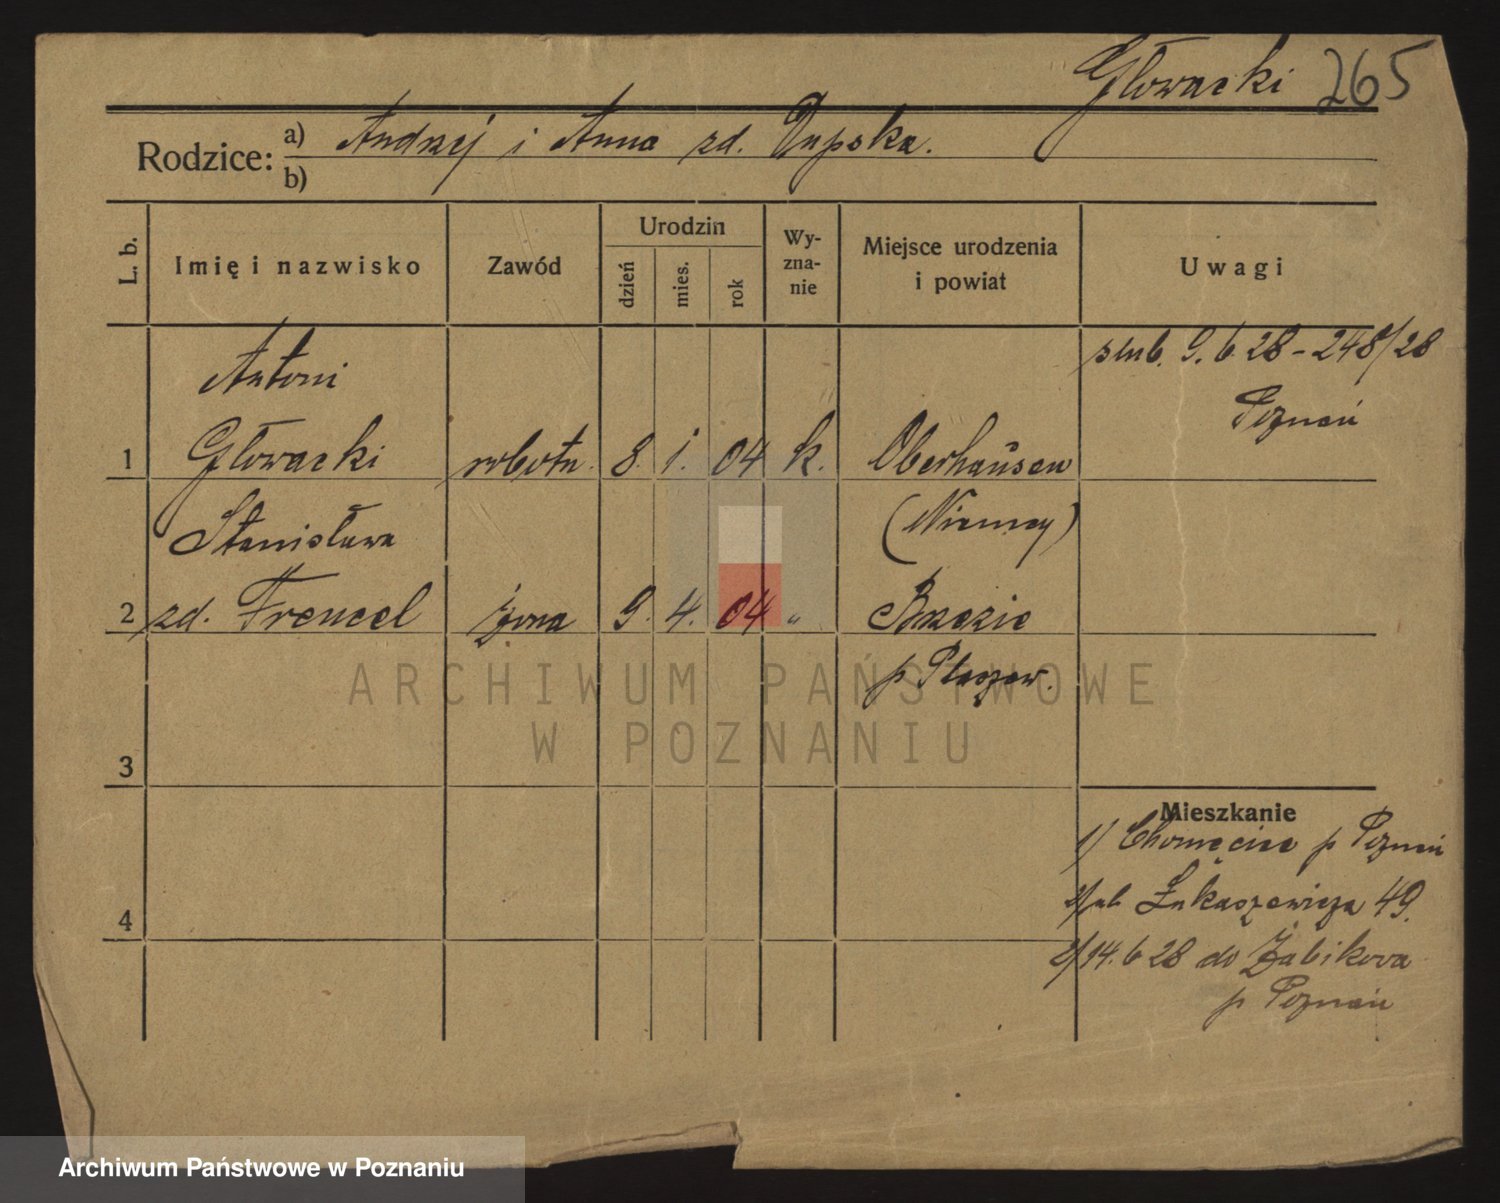 Głowacki 265
Rodzice: a) Andrzej i Anna zd. Dupska.
b)
L. b. Imię i nazwisko Zawód Urodzin dzień mies. rok Wyznanie Miejsce urodzenia i powiat Uwagi
ślub. 9. 6 28 - 248/28
Poznań
Antoni
1 Głowacki robotn. 8. 1. 04 k. Oberhausen
(Niemcy)
Stanisława
2 zd. Frencel żona 9. 4. 04 " Brzezie
p Pleszew.
3
4
Mieszkanie
1/ Chomęcice p Poznań
ul. Łukaszewicza 49.
2/ 14. 6 28 do Żabikova
p Poznań
ARCHIWUM PAŃSTWOWE
W POZNANIU
Archiwum Państwowe w Poznaniu